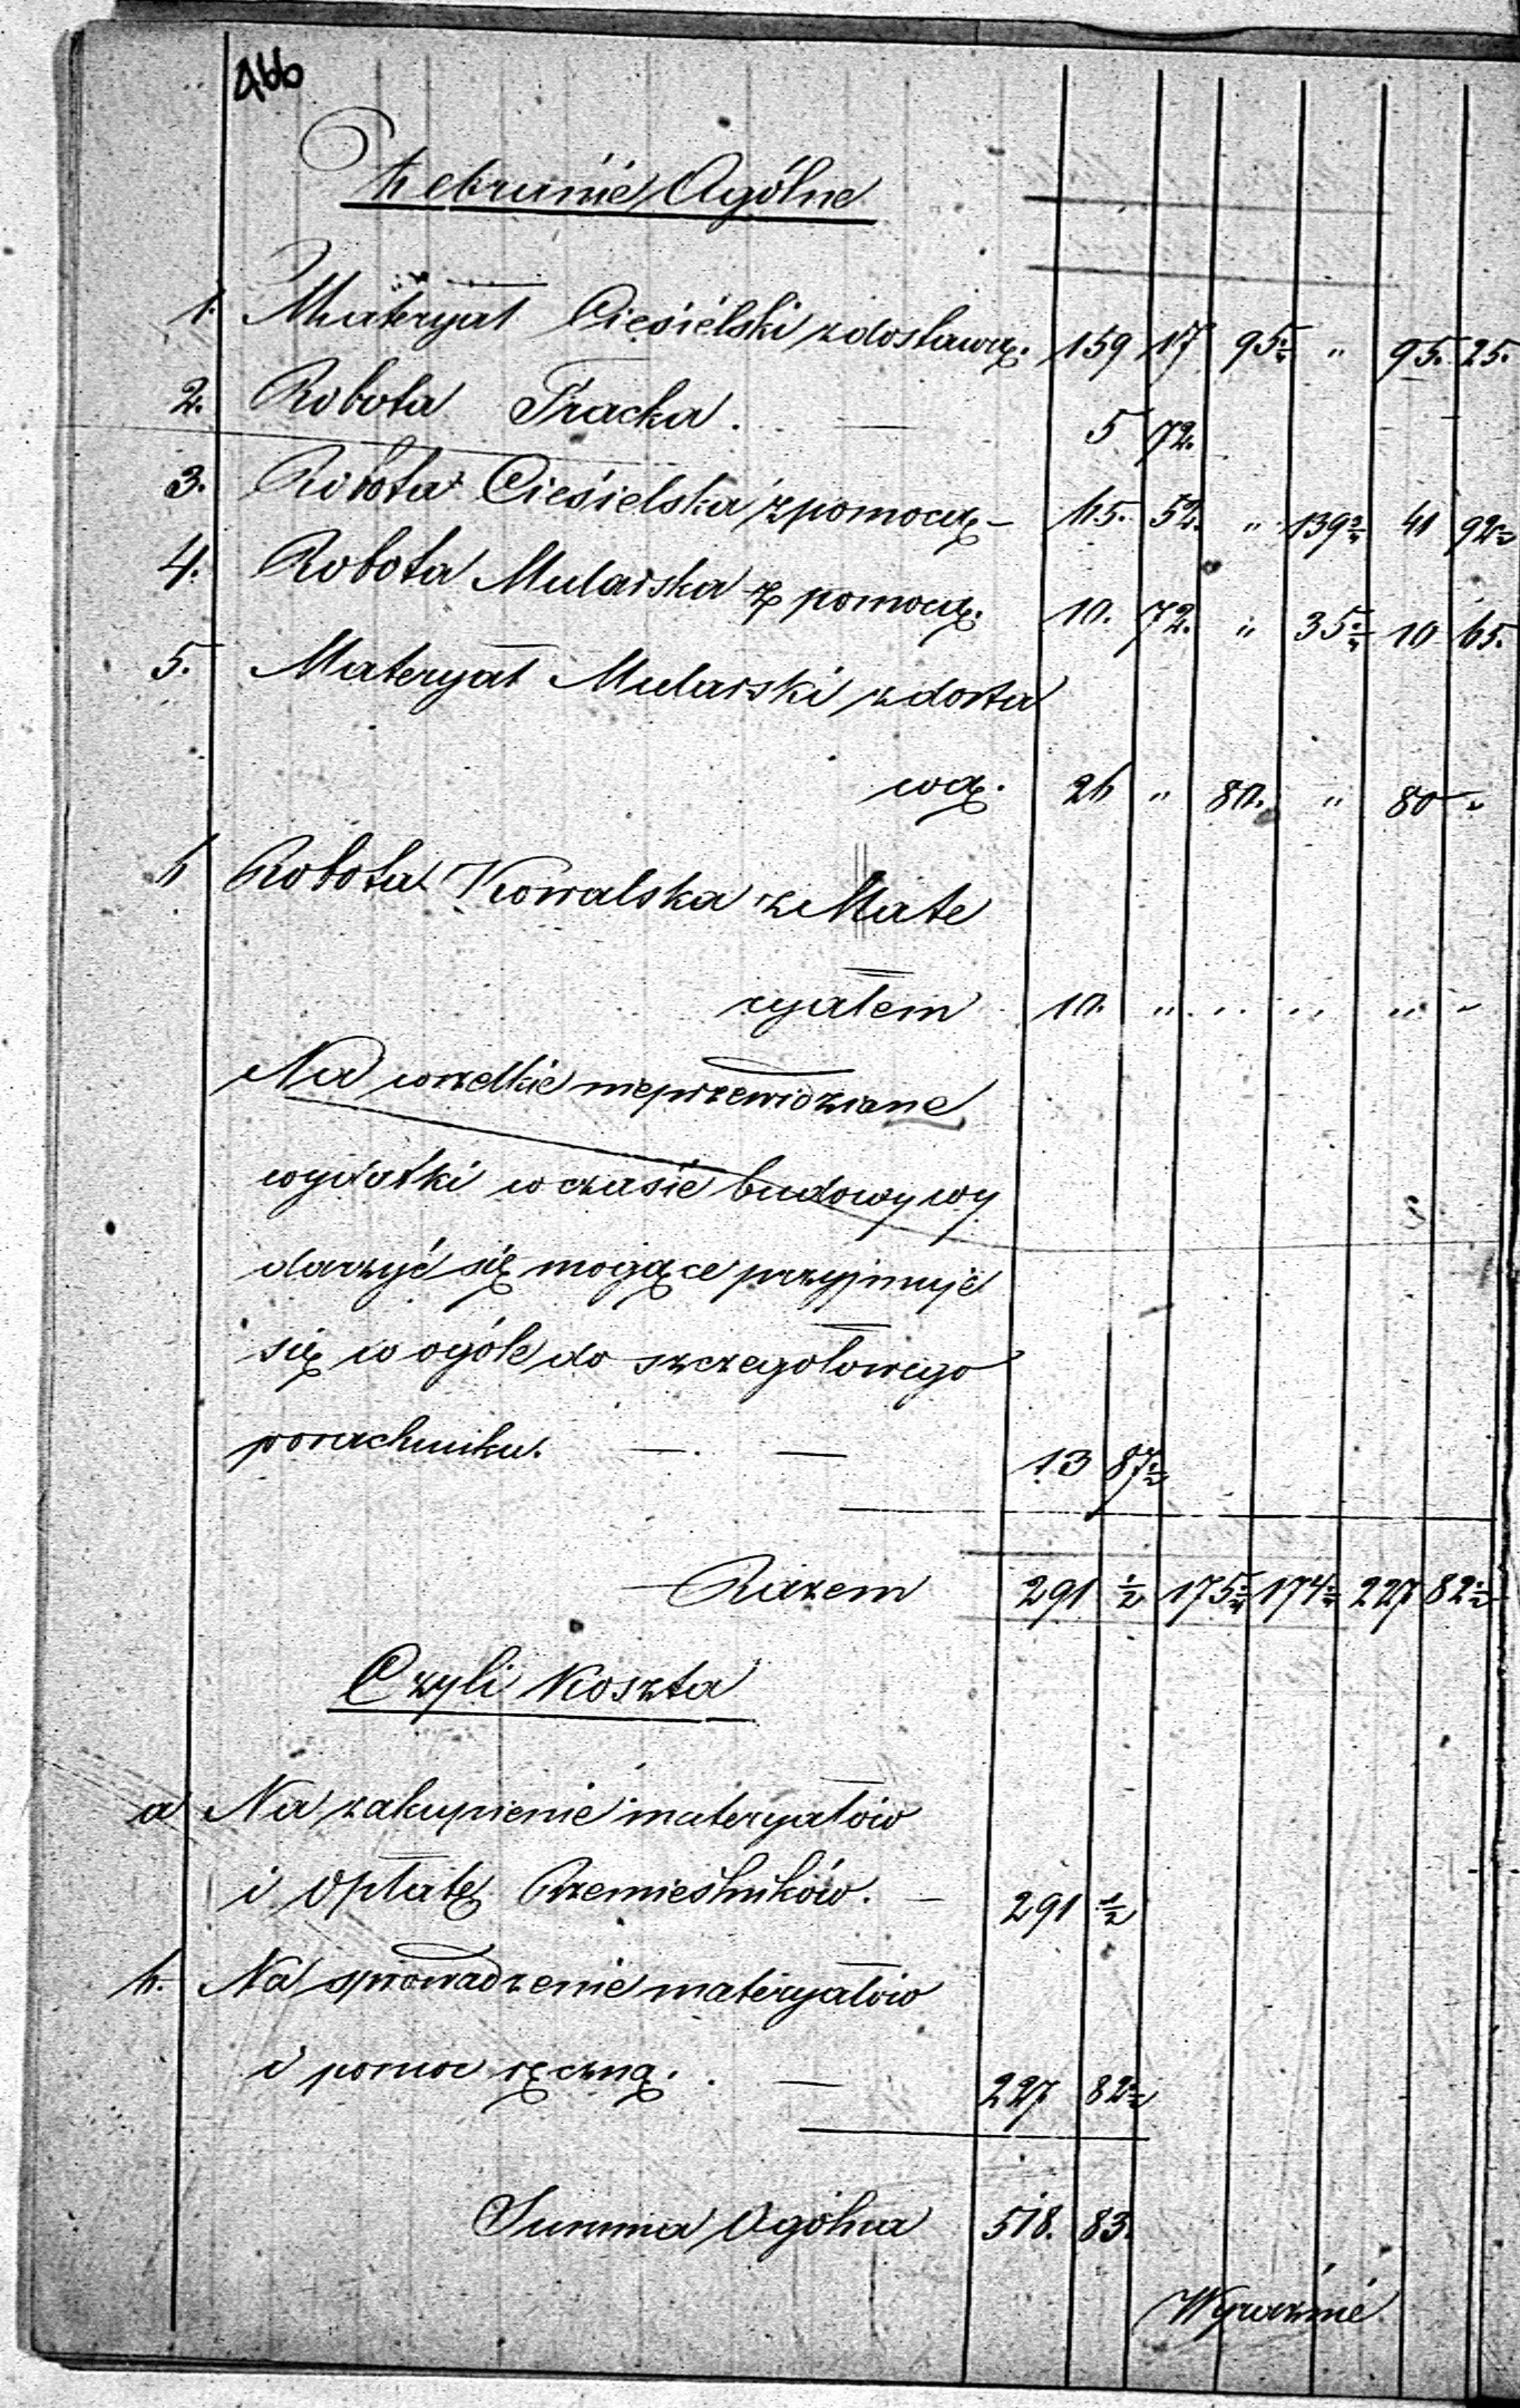 466
Zebranie Ogólne
1. Materyał Ciesielski z dostawą. 159 17 95 2/4 „ 95. 25.
2. Robota Tracka. — 5 72.
3. Robota Ciesielska z pomocą — 65. 52. „ 139 2/4 41 92 1/2
4. Robota Mularska z pomocą. 10. 72. „ 35 2/4 10 65.
5. Materyał Mularski z dosta
wą. 26 „ 80. „ 80 „
6 Robota Kowalska z Mate
ryałem 10. „ „ „ „ „
Na wszelkie nieprzewidziane
wydatki w czasie budowy wy
darzyć się mogące przyjmuje
się w ogóle do szczegółowego
porachunku. — . — 13 87 1/2
Razem 291 1/2 175 2/4 174 3/4 227 82 1/2
Czyli Koszta
a Na zakupienie materyałów
i Opłatę Rzemieślników. — 291 1/2
b. Na sprowadzenie materyałów
i pomoc ręczną. . — 227 82 1/2
Summa Ogólna 518. 83.
Wyraźnie